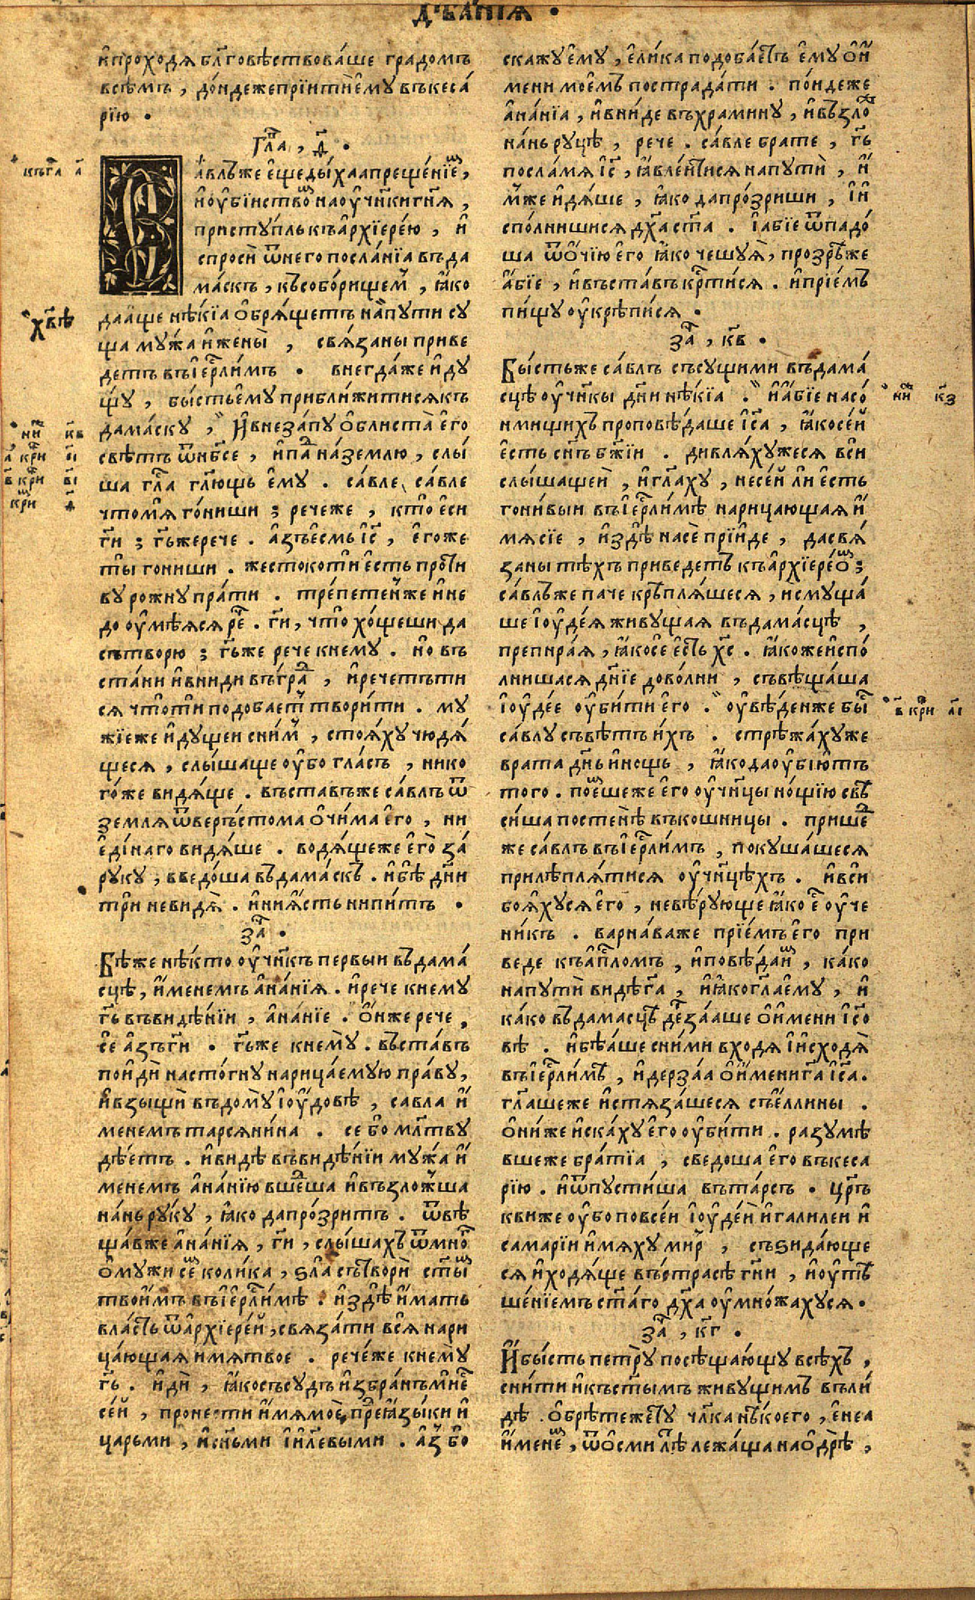 дѣѧ́нїѧ .
и҆проходѧ бл҃говѣствова́ше градомъ
всѣмъ , до́ндежепрїитиѐмꙋ въкеса́
рїю .
гл҃а , ѳ҃ .
а́влъже є҆щеды́хаапреще́нїе,
и҆ѹ҆бїиство наѹ҆ч҃нкигн҃ѧ ,
пристꙋпль къа҆рхїере́ю , и҆
спросѝ ѿнего посла́нїа въда
ма́скъ , късобо́рищем , ꙗ҆ко
даа́ще нѣ́кїа ѡ҆брѧ́щетъ напꙋти сꙋ
ща мꙋ́жа и҆жены̀ , свѧ́заны приве
детъ въїе҆рⷭ҇лимъ . внегда́же и҆дꙋ
щꙋ , бы́стьѐмꙋ прибли́житисѧкъ
дама́скꙋ , И҆внеза́пꙋ ѡ҆блиста̀ є҆го
свѣ́тъ ѿнб҃се , и҆па наземлю , слы́
ша гл҃а гл҃ющь є҆мꙋ . са́вле , са́вле
чтомѧ го́ниши ; речеже , кто̀ є҆си
гд҃и ; гд҃ьжерече . а҆зъе҆смь і҆с҃ , є҆гоже
ты̀ гониши . жестокоти є҆сть проти
вꙋ рожнꙋ пра́ти . трепете́нже и҆не
доѹ҆мѣ́ѧсѧ ре . гд҃и, что̀ хо́щеши да
сътворю ; гд҃ьже рече кнемꙋ . но въ
ста́ни и҆вниди въгра , и҆речетъти
сѧ что̀ти подобает твори́ти . мꙋ
жїеже и҆дꙋщеи сним , стоѧ́хꙋ чюдѧ́
щесѧ , слы́шаще ѹ҆бо гла́съ , нико
го́же видѧ́ще . въставъже са́влъ ѿ
землѧ ѿверъстома ѻ҆чи́ма е҆го , ни
є҆ди́наго видѧ́ше . водѧ́щеже є҆го за́
рꙋкꙋ , введо́ша въдама́скъ . и҆бѣ̀ дн҃и
три невидѧ̀ . и҆ниꙗ҆сть нипи́тъ .
за .
Бѣ́же нѣ́кто ѹ҆чн҃къ первыи въдама́
сцѣ, и҆́менемъ а҆на́нїѧ . и҆рече кнемꙋ
гд҃ь въвидѣ́нїи , а҆на́нїе . ѻ҆́нже рече ,
сѐ а҆зъгд҃и . гд҃ьже кнемꙋ̀ . въста́въ
пои́дѝ насто́гнꙋ нарица́емꙋю пра́вꙋ,
и҆взыщѝ въдомꙋ̀ і҆ѹ҆́довѣ , савла и҆́
менемъ тарсѧни́на . се бо мл҃твꙋ
дѣ́етъ . и҆видѣ̀ въвидѣ́нїи мꙋ́жа и҆́
менемъ а҆на́нїю вше́ша и҆възло́жша
на́нь рꙋкꙋ , ꙗ҆ко дапро́зритъ . ѿвѣ
ща́вже а҆на́нїѧ , гд҃и , слы́шахъ ѿмно
ѡ҆мꙋ́жи се́ коли́ка , ѕла̀ сътвори̑ ст҃ы
твои́мъ въїе҆рⷭ҇ли́мѣ . и҆здѣ̀ и҆́мать
вла́сть ѿа҆рхїере́й , свѧза́ти всѧ̀ нари
ца́ющаѧ и҆мѧтвое . рече́же кнемꙋ̀
гд҃ь . и҆ди̑ , ꙗ҆косъсꙋдъ и҆збра́нъмнѐ
се́й , проне́сти и҆́мѧмоѐ, пре ꙗ҆зы́ки и҆
царьми , и҆сн҃ъми і҆и҃левыми . а҆з бо
скажꙋѐмꙋ , є҆лика подоба́етъ є҆мꙋ ѡ҆и҆́
мени моѐмъ пострада́ти . по́идеже
а҆на́нїа , и҆вни́де въхра́минꙋ , и҆възло
на́нь рꙋцѣ , рече . са́вле брате , гд҃ь
посла́мѧ і҆с҃ , ꙗ҆вле́нтисѧ напꙋтѝ , и҆́
мже и҆дѧше , ꙗ҆ко да про́зриши , і҆и҆
спо́лнишисѧ дх҃а ст҃а . і҆а҆бїе ѿпадо́
ша ѿѻ҆чїю его ꙗ҆ко чешꙋѧ̀, прозрѣ́же
а҆́бїе , и҆въставъ кр҃тисѧ . и҆прїе́мъ
пи́щꙋ ѹ҆крѣ́писѧ .
за , к҃в .
Бы́стьже са́влъ съсꙋщими въдама́
сцѣ ѹ҆чн҃кы дн҃и нѣ́кїа . и҆а҆́бїе насо́
нмищихъ проповѣ́даше і҆с҃а , ꙗ҆косе́й
є҆сть сн҃ъ бж҃їи . дивлѧ́хꙋжесѧ вси
слы́шащеи , и҆гл҃ахꙋ , несе́й ли є҆сть
гони́выи въїе҆рⷭ҇ли́мѣ нарица́ющаѧ и҆́
мѧ сїе , и҆здѣ̀ насѐ прїи́де , дасвѧ́
заны тѣ́хъ приведетъ къа҆рхїерео ;
са́влъже паче крѣплѧ́шесѧ , и҆смꙋща́
ше і҆ѹ҆деѧ живꙋщаѧ въдама́сцѣ ,
препира́ѧ , ꙗ҆косе є҆сть х҃с . ꙗ҆кожеи҆спо́
лнишасѧ дн҃їе дово́лни , съвѣща́ша
і҆ѹ҆дее ѹ҆би́ти е҆го . ѹ҆вѣ́денже бы
са́влꙋ съвѣ́тъ и҆́хъ . стрѣжа́хꙋже
врата̀ дн҃ь и҆но́щь , ꙗ҆ко даѹ҆бїю́тъ
того . пое́мшеже є҆го ѹ҆чн҃цы но́щїю свѣ
си́ша постенѣ̀ въкошницы . прише
же са́влъ въїе҆рⷭ҇ли́мъ , покꙋша́шесѧ
прилѣплѧ́тисѧ ѹ҆чн҃цѣхъ . и҆вси
боѧ́хꙋсѧ є҆го , невѣ́рꙋюще ꙗ҆ко є҆ ѹ҆че
ни́къ . варна́важе прїе́мъ е҆го при
веде къа҆пл҃омъ , и҆повѣ́да и҆̀ , ка́ко
напꙋтѝ видѣ гд҃а , и҆ꙗ҆когл҃аѐмꙋ , и҆
ка́ко въдамасцѣ̀ де́рзаа́ше ѡ҆и҆́мени і҆с҃о
вѣ . и҆бѣа́ше сни́ми входѧ і҆и҆сходѧ̀
въїе҆рⷭ҇ли́мъ , и҆дерза́а ѡ҆и҆́мени гд҃а і҆с҃а .
гл҃ашеже и҆стѧза́шесѧ съе҆́ллины .
ѻ҆ни́же и҆ска́хꙋ є҆го ѹ҆би́ти . разꙋмѣ̀
вшеже бра́тїа , сведоша є҆го въкеса
рїю . и҆ѿпꙋсти́ша въта́рсъ . цр҃ъ
квиже ѹ҆бо повсе́и і҆ѹ҆де́й и҆галиле́и и҆
самари́и и҆мѧ́хꙋ мир , съѕида́юще
сѧ и҆ходѧ́ще въстра́сѣ гд҃ни , и҆ѹ҆тѣ
ше́нїемъ ст҃а́го дх҃а ѹ҆мно́жахꙋсѧ .
за , к҃г .
И҆бы́сть петрꙋ̀ посѣща́ющꙋ всѣ́хъ ,
сни́ти и҆къст҃ымъ живꙋщимъ въли́
дѣ . ѡ҆брѣ́тежетꙋ чл҃ка нѣ́коего , є҆не́а
и҆́мене , ѿѻ҆сми лѣ лежа́ща наѻ҆дрѣ ,